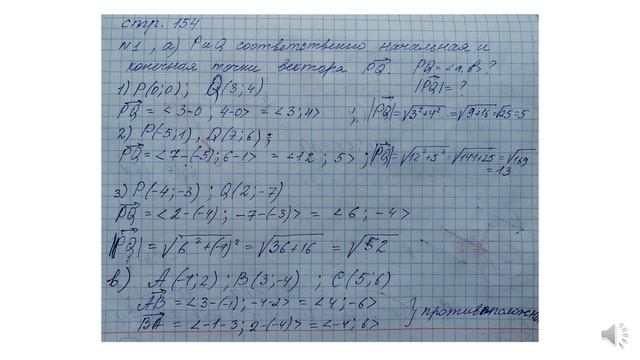 стр. 154
N1, а) P и Q соответственно начальная и
конечная точки вектора PQ. PQ = <a, b> ?
1) P(0;0); Q(3;4) |PQ| = ?
PQ = <3-0; 4-0> = <3; 4> ; |PQ| = √3²+4² = √9+16 = √25 = 5
2) P(-5;1), Q(7;6);
PQ = <7-(-5); 6-1> = <12; 5> ; |PQ| = √12²+5² = √144+25 = √169
= 13
3) P(-4;-3) ; Q(2;-7)
PQ = <2-(-4); -7-(-3)> = <6; -4>
|PQ| = √6²+(-4)² = √36+16 = √52
в) A(-1;2) ; B(3;-4) ; C(5;6)
AB = <3-(-1); -4-2> = <4; -6>
BA = <-1-3; 2-(-4)> = <-4; 6> } противоположны